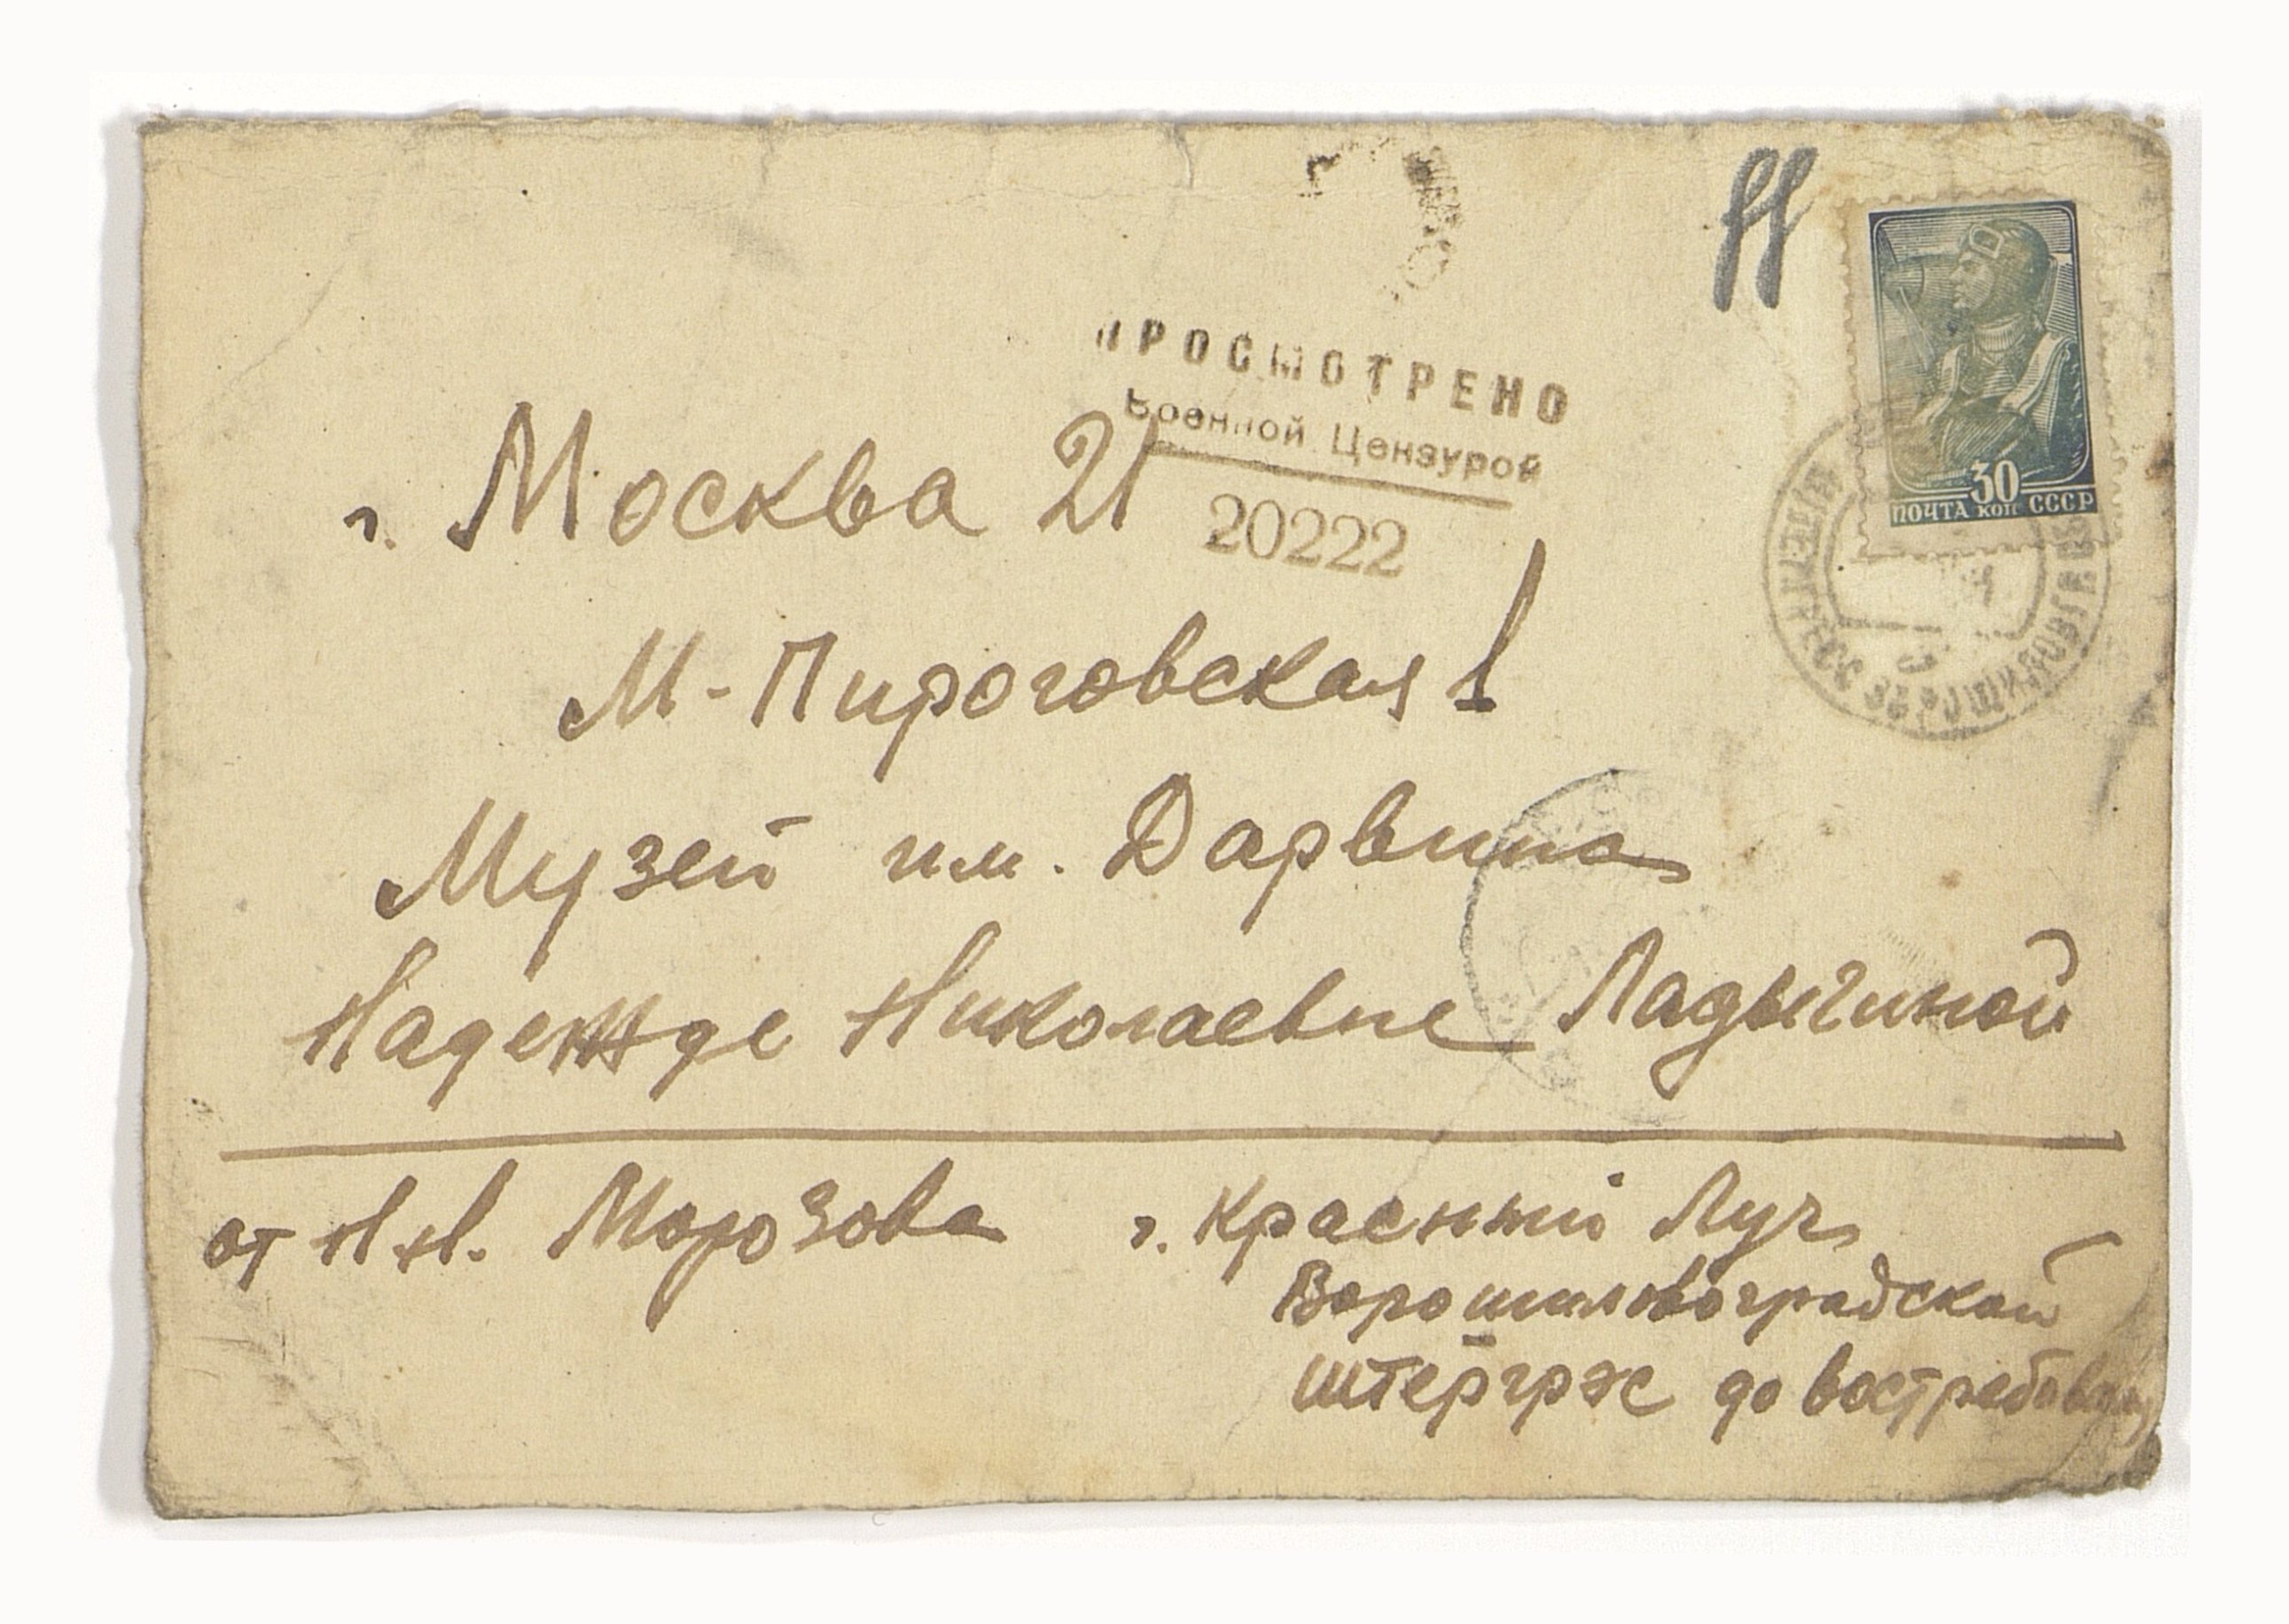 ПРОСМОТРЕНО
Военной Цензурой
20222
30
ПОЧТА коп СССР
г. Москва 21
М-Пироговская 1
Музей им. Дарвина
Надежде Николаевне Ладыгиной
от Н.Н. Морозова
г. Красный Луч
Ворошиловоградской
штергрэс до востребования